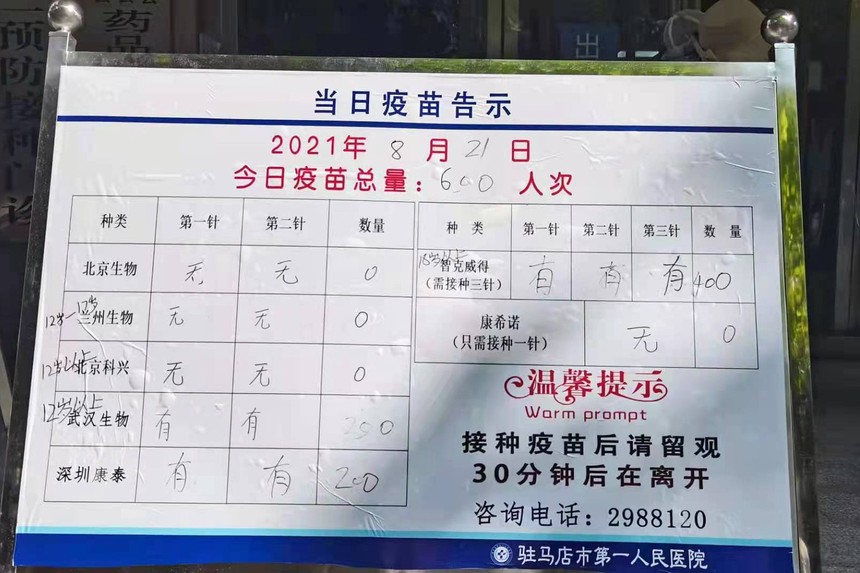 一预防接种门诊
药品
出
当日疫苗告示
2021年 8 月 21 日
今日疫苗总量：600 人次
种类 第一针 第二针 数量
北京生物 无 无 0
12岁-17岁 兰州生物 无 无 0
12岁以上 北京科兴 无 无 0
12岁以上 武汉生物 有 有 250
深圳康泰 有 有 200
种 类 第一针 第二针 第三针 数 量
18岁以上 智克威得 有 有 有 400
（需接种三针）
康希诺 无 0
（只需接种一针）
温馨提示
Warm prompt
接种疫苗后请留观
30分钟后在离开
咨询电话：2988120
驻马店市第一人民医院